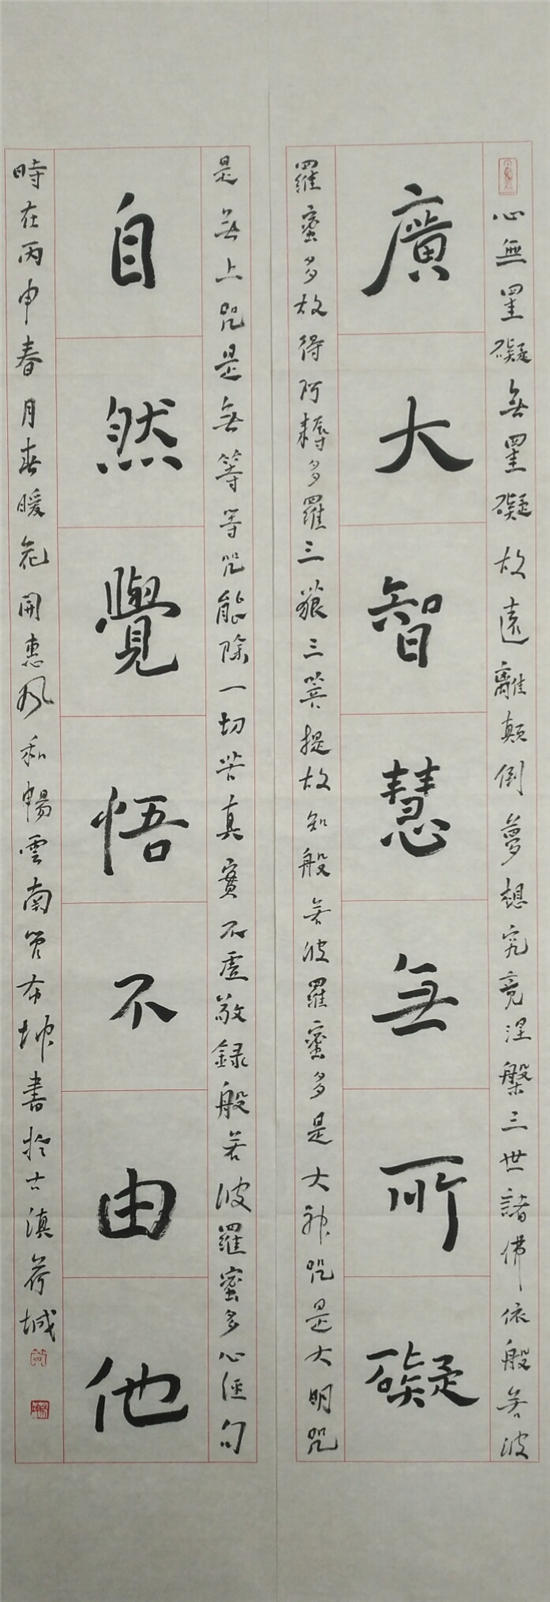 心無罣礙無罣礙故遠離顛倒夢想究竟涅槃三世諸佛依般若波
廣大智慧無所礙
羅蜜多故得阿耨多羅三藐三菩提故知般若波羅蜜多是大神咒是大明咒
是無上咒是無等等咒能除一切苦真實不虛敬録般若波羅蜜多心經句
自然覺悟不由他
時在丙申春月春暖花開惠風和暢雲南書於古滇荷城